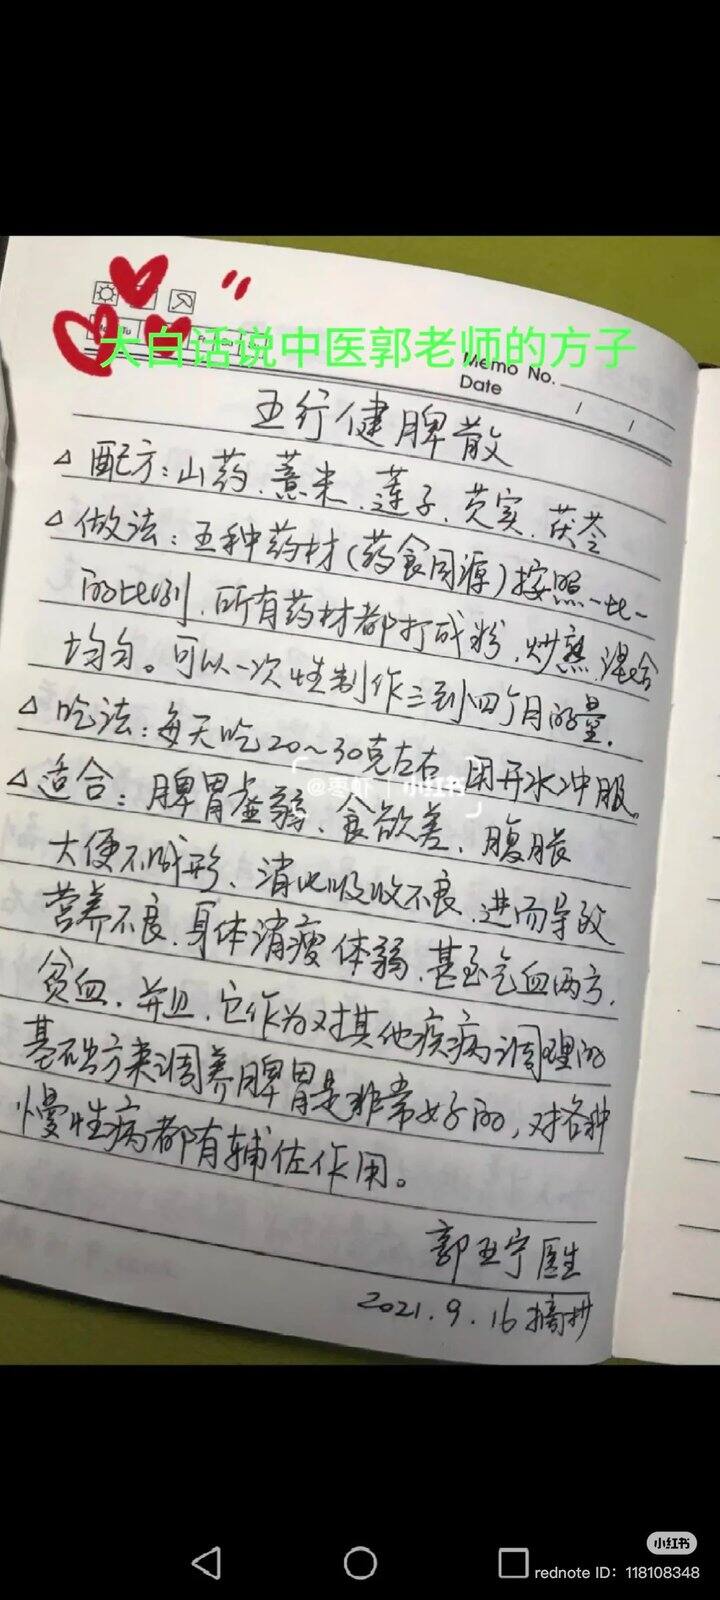 大白话说中医郭老师的方子
Memo No.
Date / /
五行健脾散
△ 配方：山药、薏米、莲子、芡实、茯苓
△ 做法：五种药材(药食同源)按照一比一
的比例，所有药材都打成粉，炒熟，混合
均匀。可以一次性制作三到四个月的量。
△ 吃法：每天吃20～30克左右，用开水冲服。
@枣虾 | 小红书
△ 适合：脾胃虚弱、食欲差、腹胀
大便不成形、消化吸收不良，进而导致
营养不良，身体消瘦体弱，甚至气血两亏，
贫血，并且，它作为对其他疾病调理的
基础方来调养脾胃是非常好的，对各种
慢性病都有辅佐作用。
郭亚宁医生
2021.9.16摘抄
小红书
rednote ID：118108348